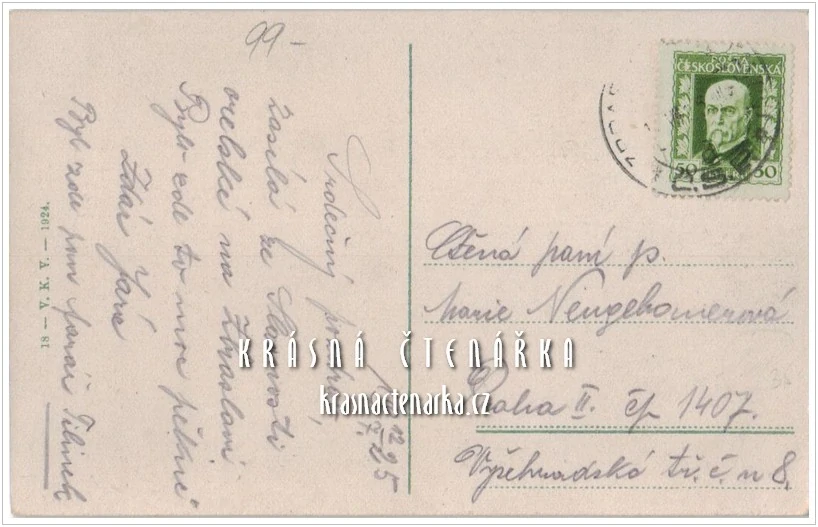 99-
Srdečný pozdrav
zasílá ze Slavnosti
orelské na Zbraslavi
Bylo zde to moc pěkné
Zdař Jára
Byl zde pan farář Jilinek
12 25
18 — V. K. V. — 1924.
POŠTA
ČESKOSLOVENSKÁ
50 50
Ctěná paní p.
Marie Neugebomerová
Praha II. čp 1407.
Vyšehradská tř. č. n 8.
KRÁSNÁ ČTENÁŘKA
krasnactenarka.cz